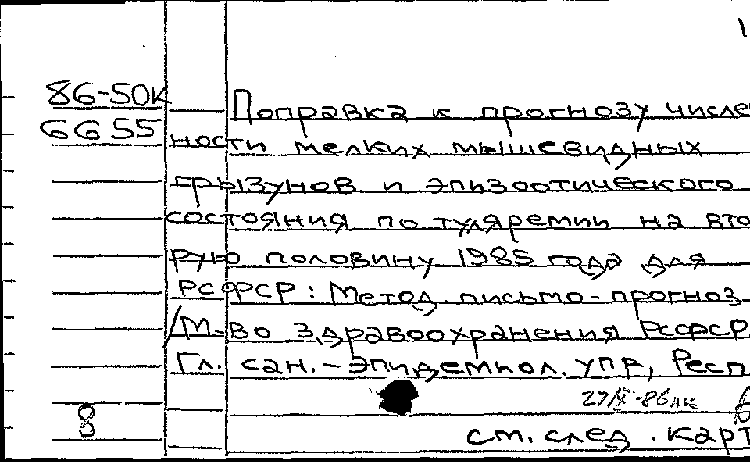 1
86-50к Поправка к прогнозу числе
6655 ности мелких мышевидных
грызунов и эпизоотического
состояния по туляремии на вто
рую половину 1985 года для
РСФСР: Метод. письмо-прогноз
/М-во здравоохранения РСФСР.
Гл. сан.-эпидемиол. упр, Респ
8
см. след. карт